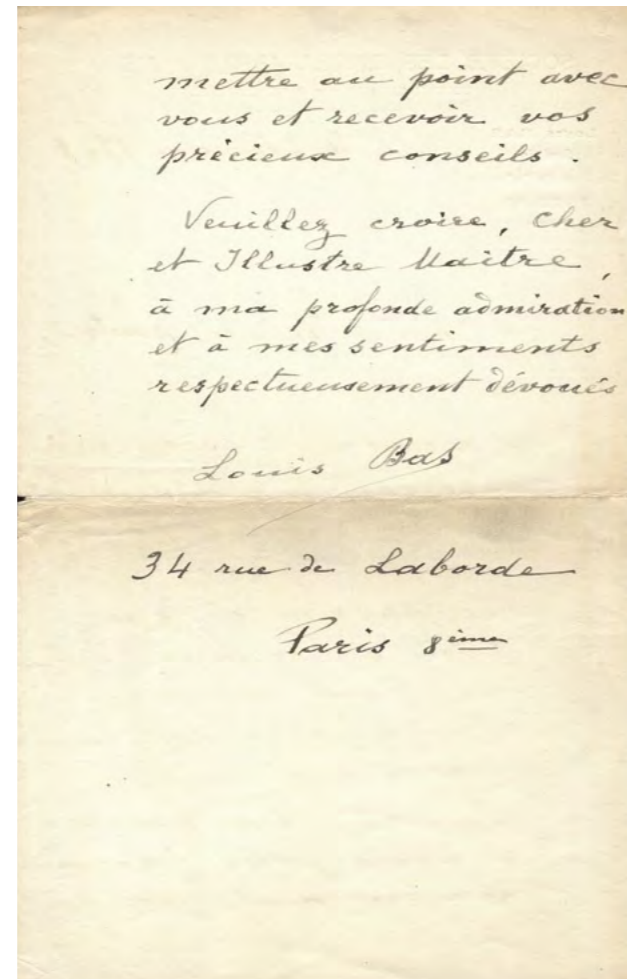 mettre au point avec
vous et recevoir vos
précieux conseils.
Veuillez croire, Cher
et Illustre Maître,
à ma profonde admiration
et à mes sentiments
respectueusement dévoués
Louis Bas
34 rue de Laborde
Paris 8ème